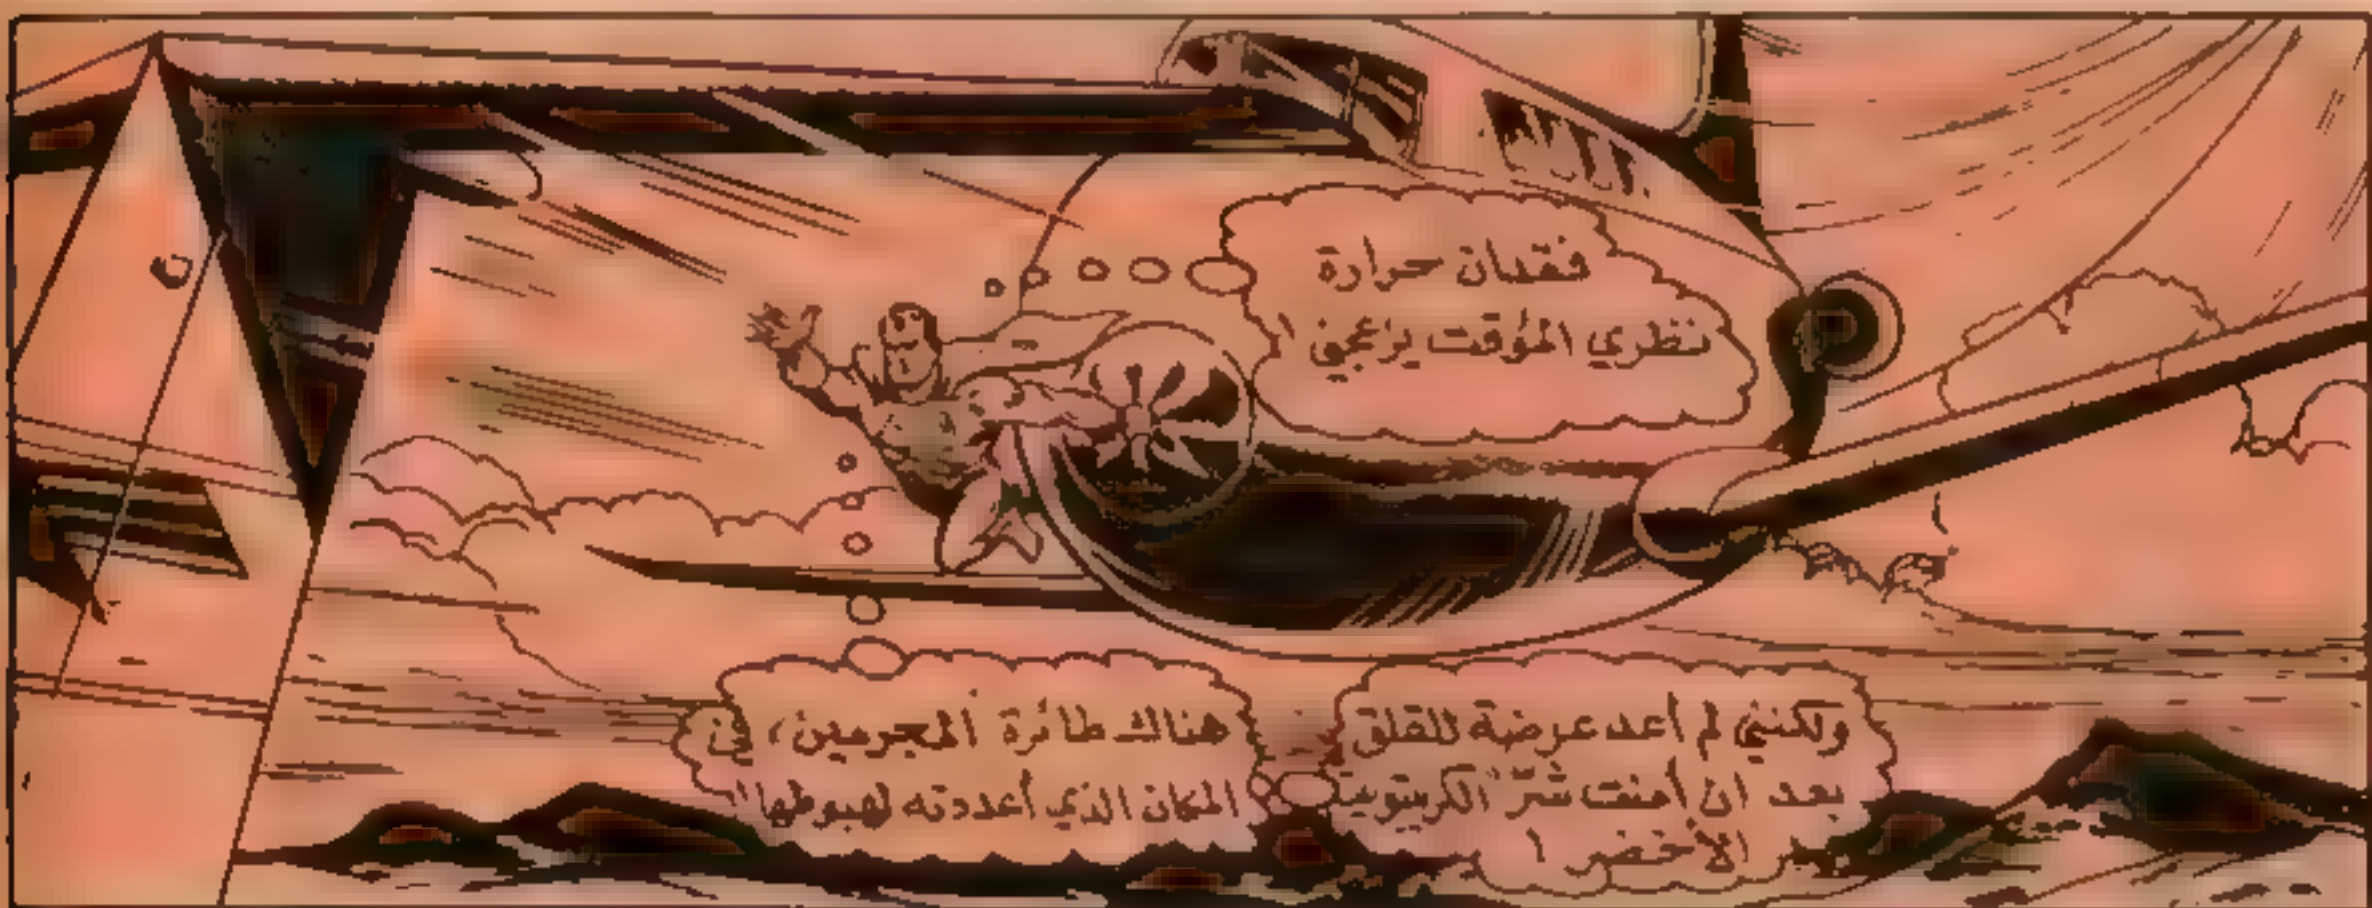 فقدان حرارة
نظري المؤقت يزعجني !
ولكنني لم أعد عرضة للقلق
بعد ان أمنت شرّ الكريبتونيت
الأخضر !
هناك طائرة المجرمين، في
المكان الذي أعددته لهبوطها !